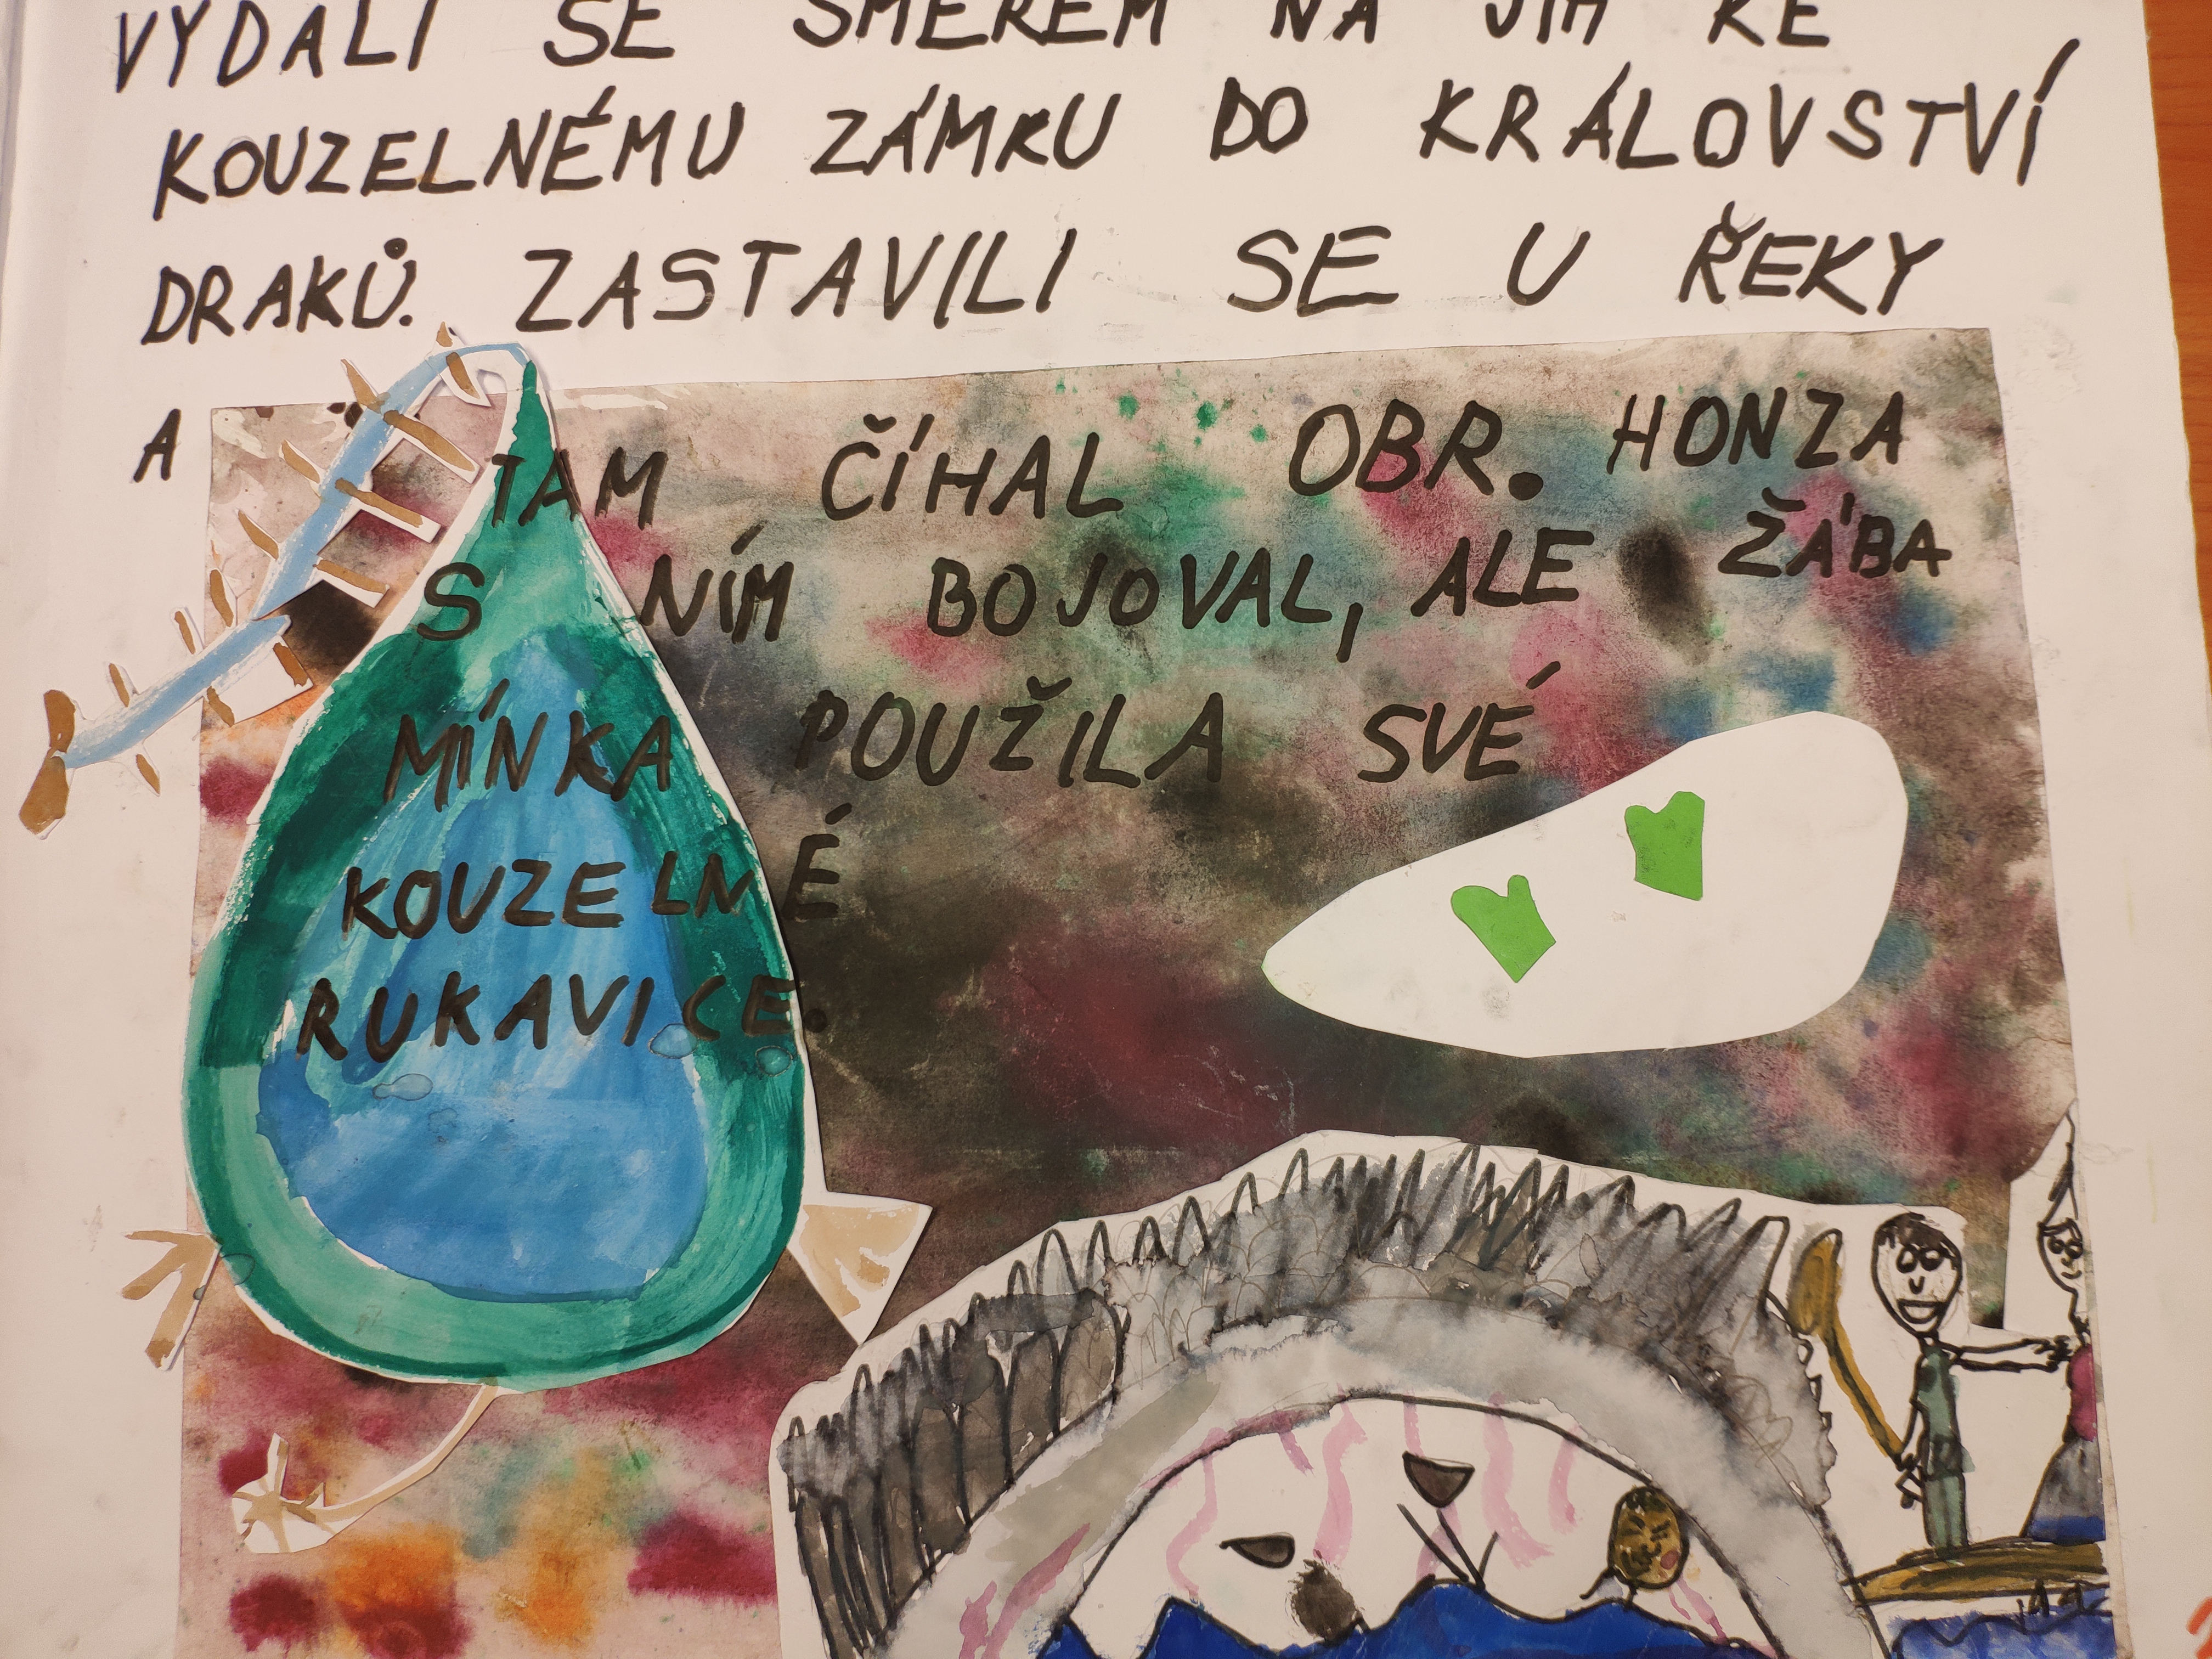 VYDALI SE SMĚREM NA JIH KE
KOUZELNÉMU ZÁMKU DO KRÁLOVSTVÍ
DRAKŮ. ZASTAVILI SE U ŘEKY
A TAM ČÍHAL OBR. HONZA
S NÍM BOJOVAL, ALE ŽÁBA
MÍNKA POUŽILA SVÉ
KOUZELNÉ
RUKAVICE.